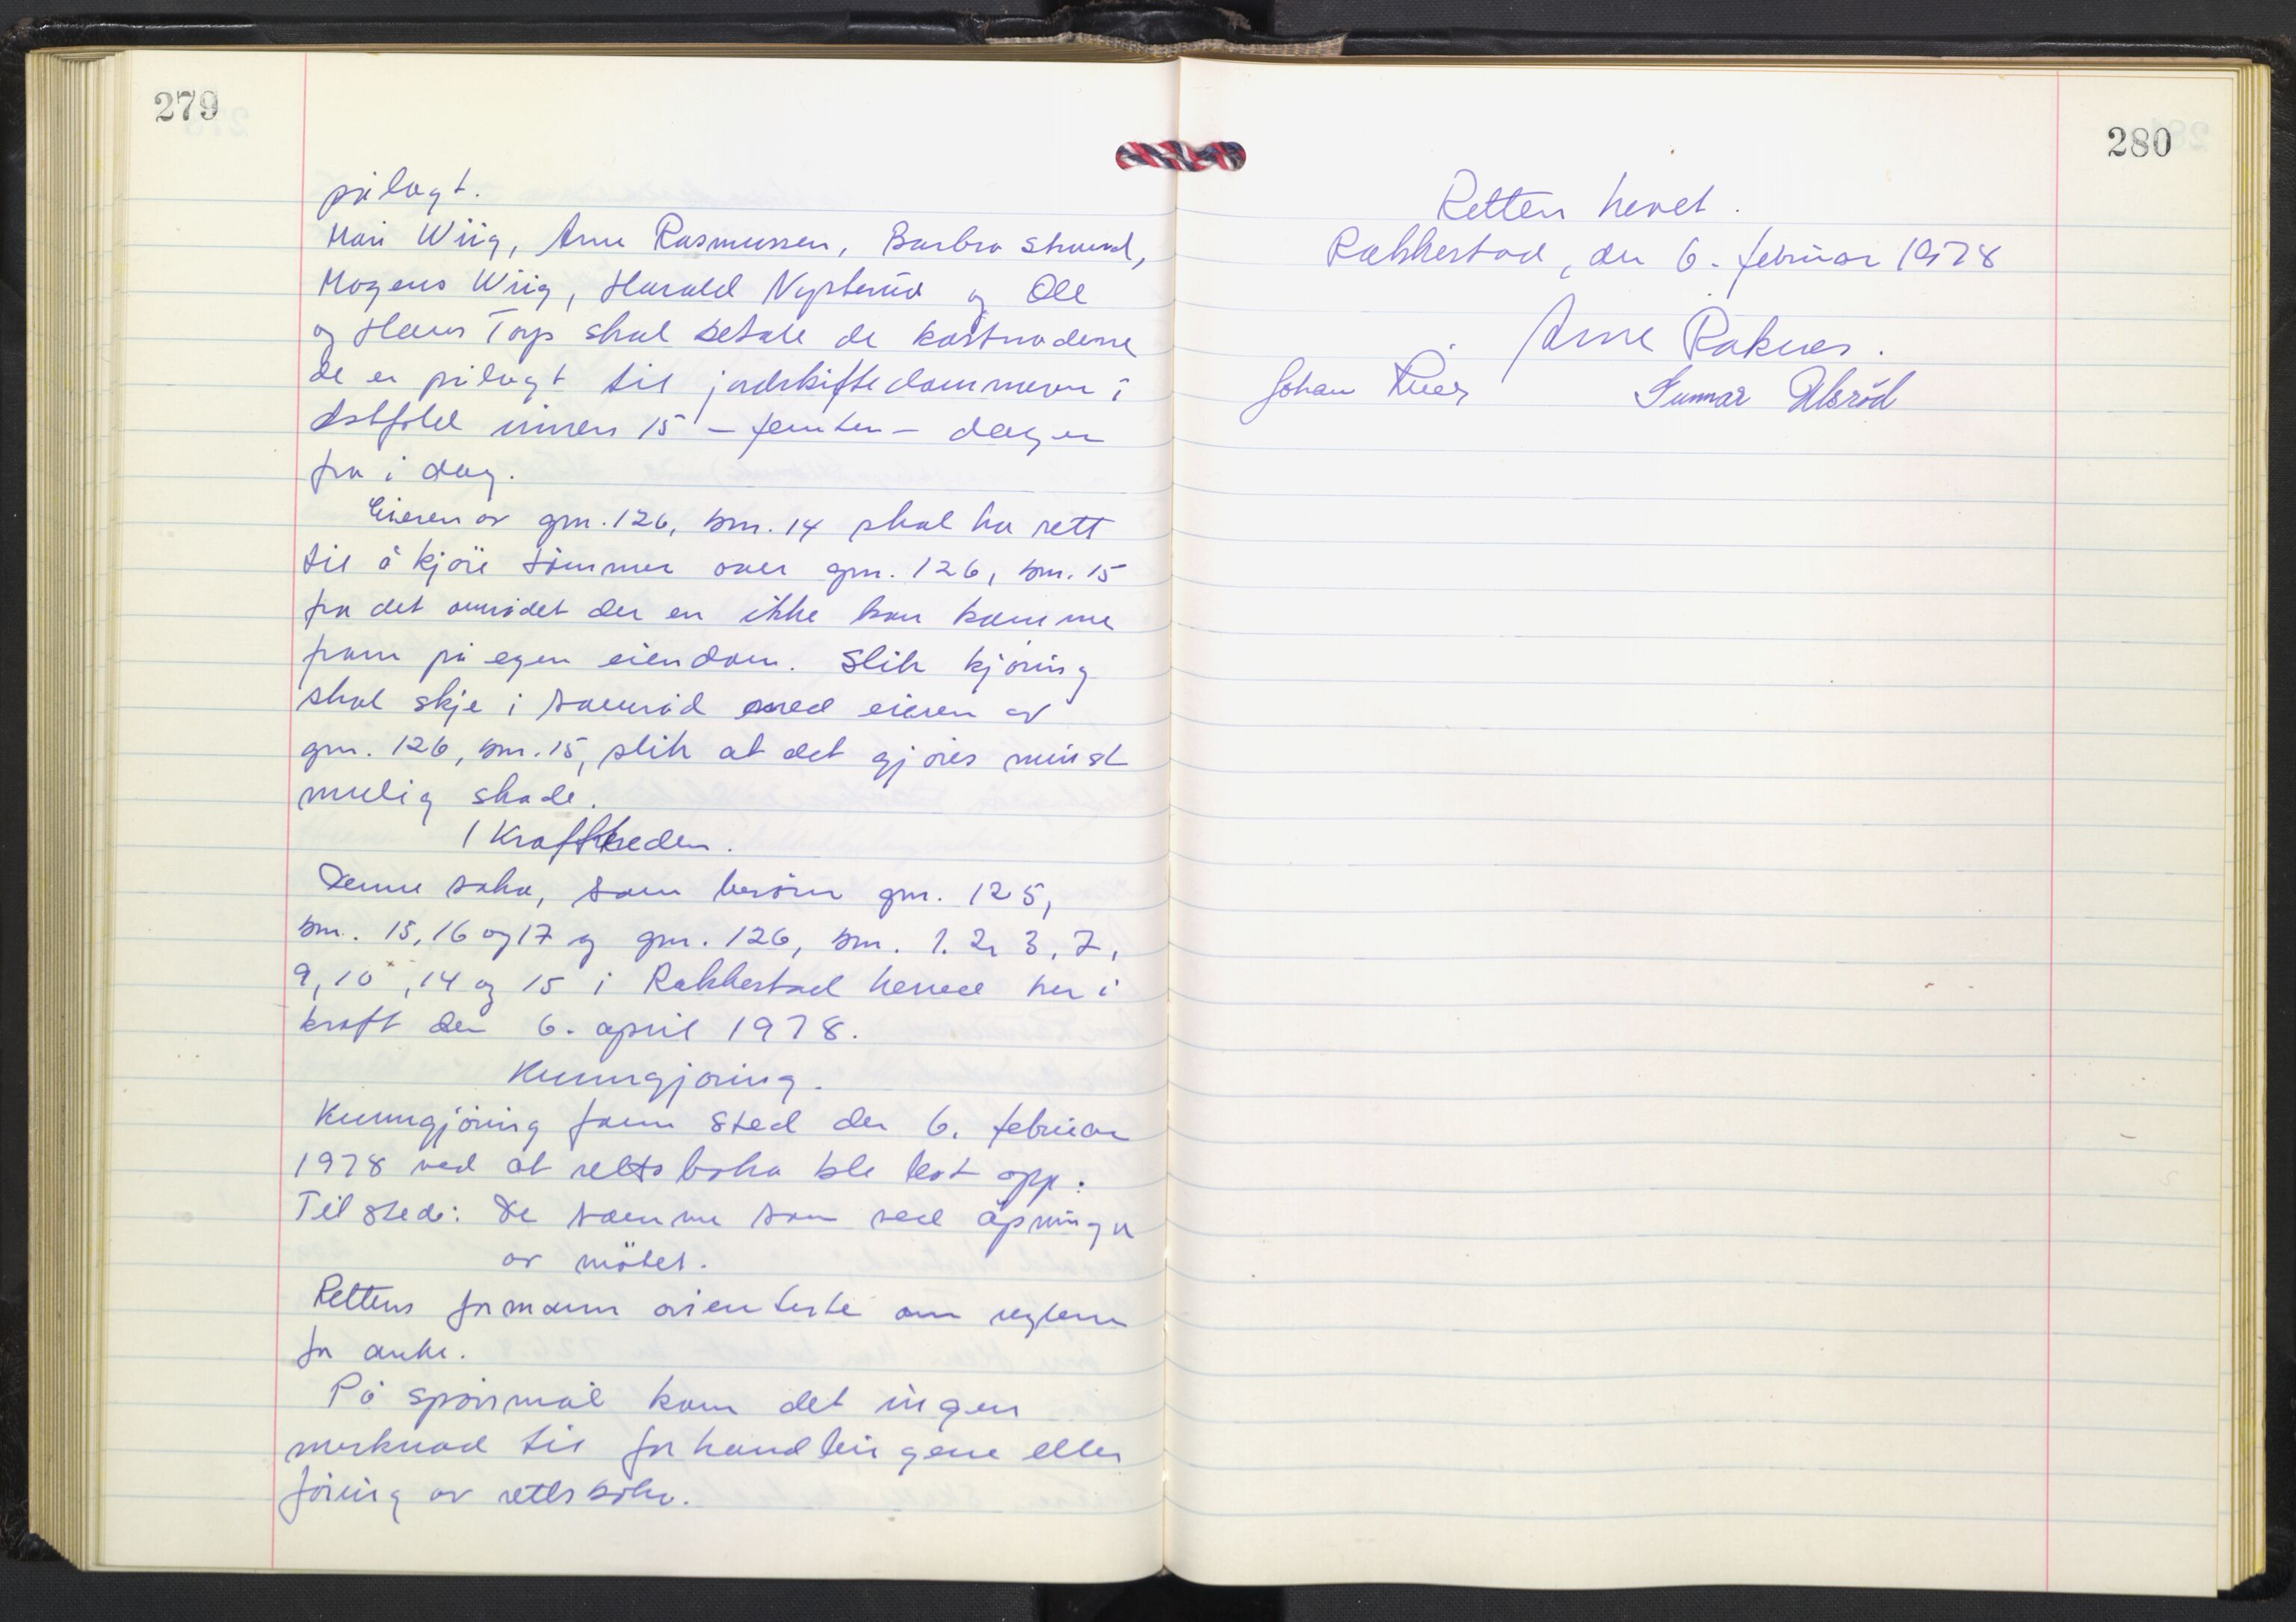 279
pålagt.
Mari Wiig, Arne Rasmussen, Barbro Strand,
Mogens Wiig, Harald Nysterud og Ole
og Hans Torp skal betale de kostnadene
de er pålagt til jordskiftedommeren i
Østfold innen 15 - femten - dager
fra i dag.
Eieren av gnr. 126, bnr. 14 skal ha rett
til å kjöre tömmer over gnr. 126, bnr. 15
fra det området der en ikke kan komme
fram på egen eiendom. Slik kjöring
skal skje i samråd med eieren av
gnr. 126, bnr. 15, slik at det gjöres minst
mulig skade.
Ikrafttreden.
Denne saka, som berörer gnr. 125,
bnr. 15, 16 og 17 og gnr. 126, bnr. 1. 2, 3, 7,
9, 10, 14 og 15 i Rakkestad herred trer i
kraft den 6. april 1978.
Kunngjöring.
Kunngjöring fann sted den 6. februar
1978 ved at rettsboka ble lest opp.
Til stede: De samme som ved åpninga
av mötet.
Rettens formann orienterte om reglene
for anke.
På spörsmål kom det ingen
merknad til forhandlingene eller
föring av rettsboka.
280
Retten hevet.
Rakkestad, den 6. februar 1978
Arne Raknes.
Johan
Gunnar Ulsröd